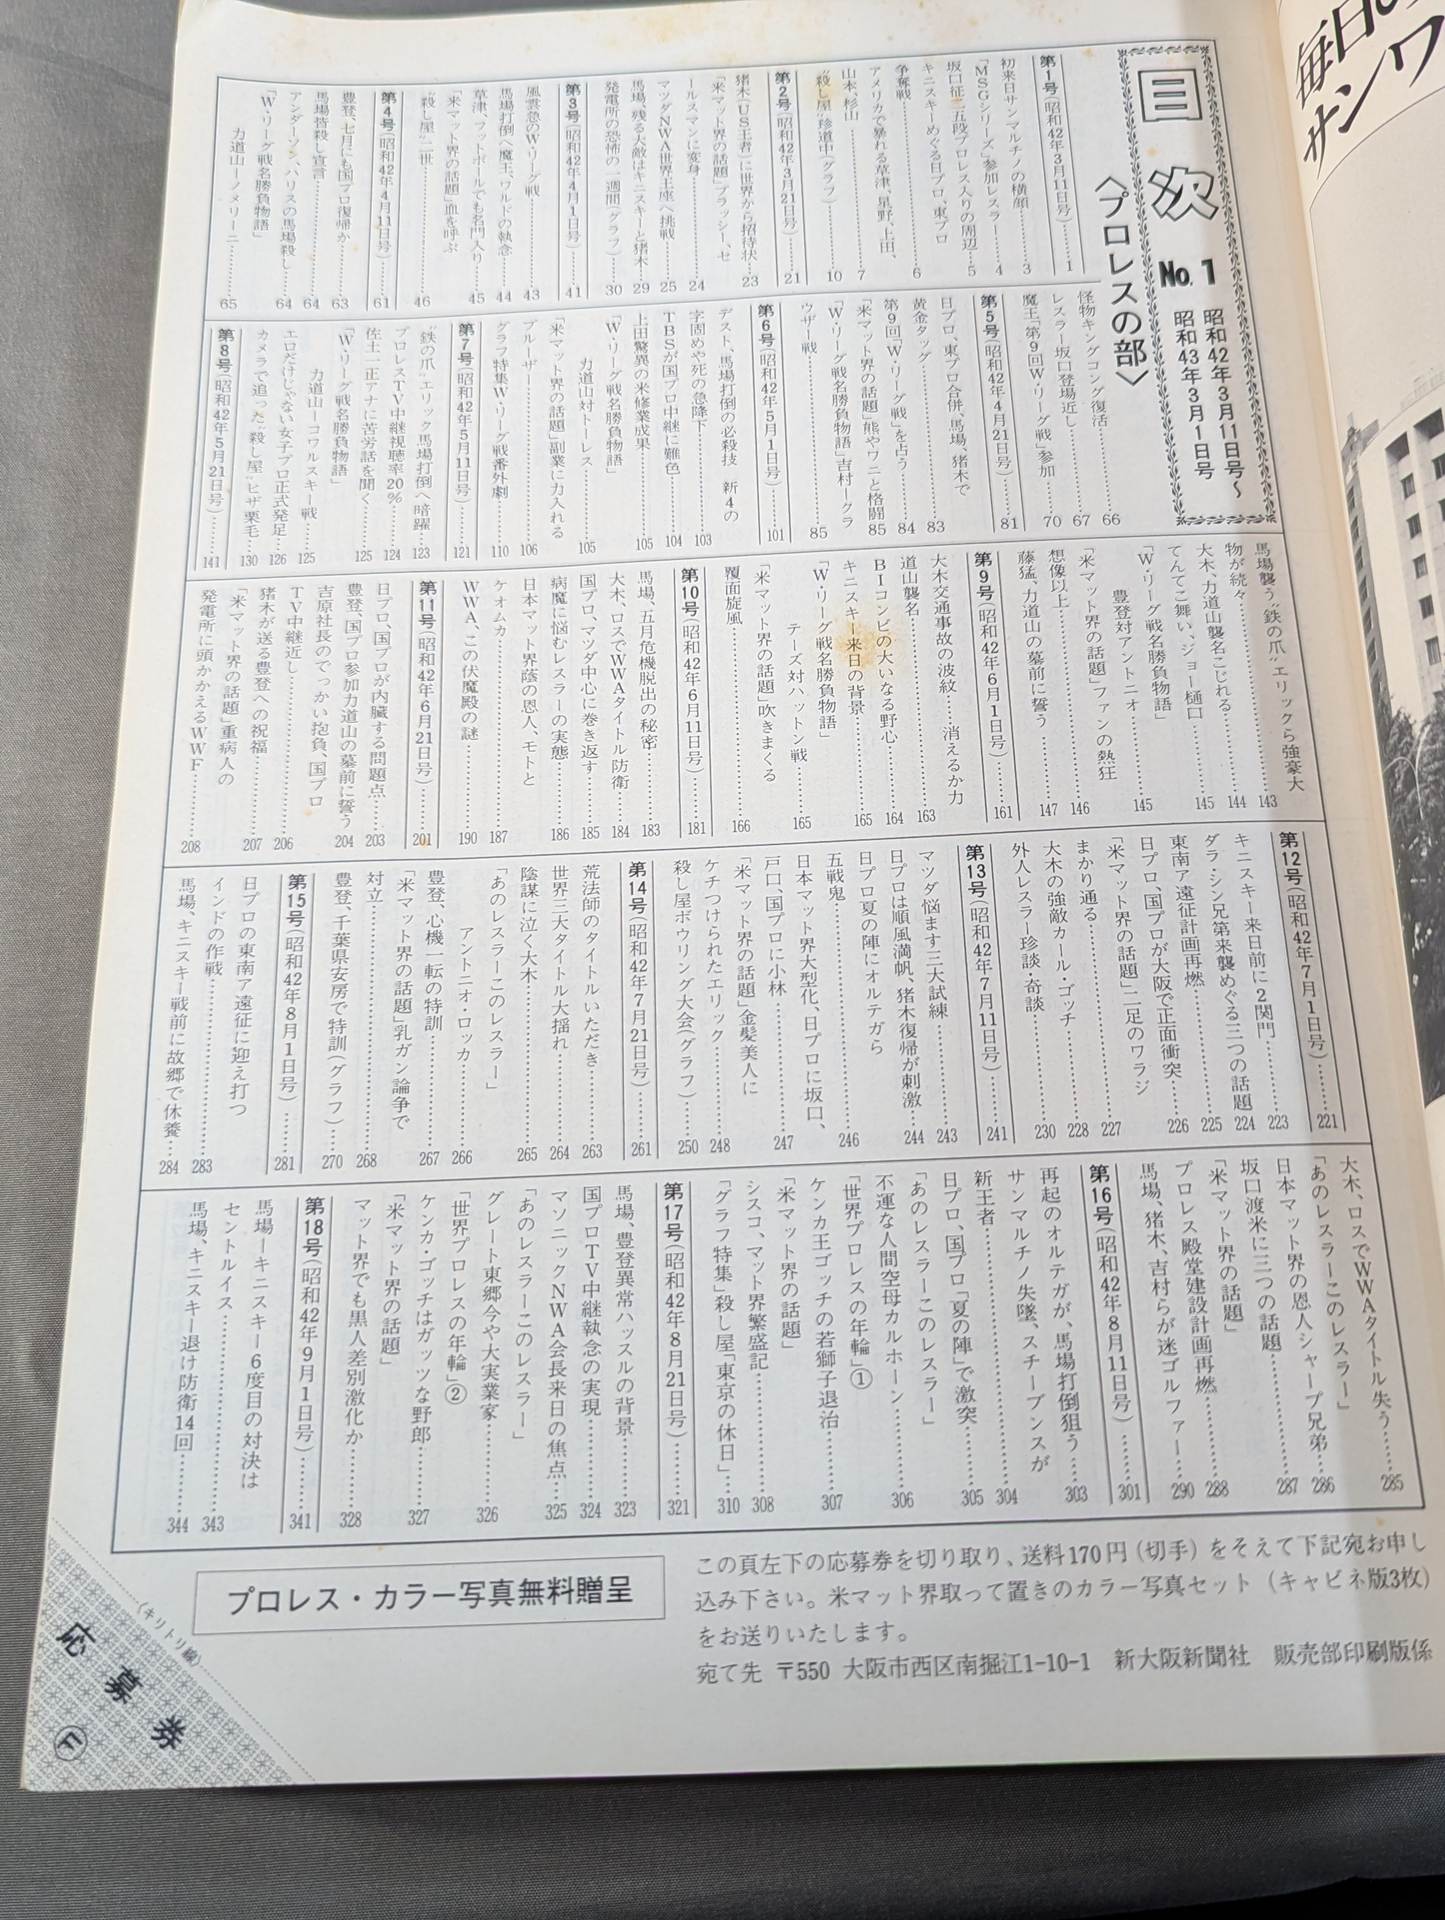 目次 No.1
昭和42年3月11日号〜
昭和43年3月1日号
〈プロレスの部〉
第1号(昭和42年3月11日号)……1
初来日サンマルチノの横顔……3
「MSGシリーズ」参加レスラー……4
坂口征二五段プロレス入りの周辺……5
キニスキーめぐる日プロ、東プロ
争奪戦……6
アメリカで暴れる草津、星野、上田、
山本、杉山……7
"殺し屋"珍道中(グラフ)……10
第2号(昭和42年3月21日号)……21
猪木(US王者)に世界から招待状……23
「米マット界の話題」ブラッシー、セ
ールスマンに変身……24
マツダNWA世界王座へ挑戦……25
馬場、残る大敵はキニスキーと猪木……29
発電所の恐怖の一週間(グラフ)……30
第3号(昭和42年4月1日号)……41
風雲急のW・リーグ戦……43
馬場打倒へ魔王、ワルドの執念……44
草津、フットボールでも名門入り……45
「米マット界の話題」血を呼ぶ
"殺し屋"二世……46
第4号(昭和42年4月11日号)……61
豊登、七月にも国プロ復帰か……63
馬場皆殺し宣言……64
アンダーソン、ハリスの馬場殺し……64
「W・リーグ戦名勝負物語」
力道山ーノメリーニ……65
怪物キングコング復活……66
レスラー坂口登場近し……67
魔王、第9回W・リーグ戦」参加……70
第5号(昭和42年4月21日号)……81
日プロ、東プロ合併、馬場、猪木で
黄金タッグ……83
第9回「W・リーグ戦」を占う……84
「米マット界の話題」熊やワニと格闘……85
「W・リーグ戦名勝負物語」吉村ークラ
ウザー戦……85
第6号(昭和42年5月1日号)……101
デスト、馬場打倒の必殺技 新4の
字固めや死の急降下……103
TBSが国プロ中継に難色……104
上田驚異の米修業成果……105
「W・リーグ戦名勝負物語」
力道山対トーレス……105
「米マット界の話題」副業に力入れる
ブルーザー……106
グラフ特集W・リーグ戦番外劇……110
第7号(昭和42年5月11日号)……121
"鉄の爪"エリック馬場打倒へ暗躍……123
プロレスTV中継視聴率20%……124
佐土一正アナに苦労話を聞く……125
「W・リーグ戦名勝負物語」
力道山ーコワルスキー戦……125
エロだけじゃない女子プロ正式発足……126
カメラで追った"殺し屋"ヒザ栗毛……130
第8号(昭和42年5月21日号)……141
馬場襲う"鉄の爪"エリックら強豪大
物が続々……143
大木、力道山襲名こじれる……144
てんてこ舞い、ジョー樋口……145
「W・リーグ戦名勝負物語」
豊登対アントニオ……145
「米マット界の話題」ファンの熱狂
想像以上……146
藤猛、力道山の墓前に誓う……147
第9号(昭和42年6月1日号)……161
大木交通事故の波紋……消えるか力
道山襲名……163
BIコンビの大いなる野心……164
キニスキー来日の背景……165
「W・リーグ戦名勝負物語」
テーズ対ハットン戦……165
「米マット界の話題」吹きまくる
覆面旋風……166
第10号(昭和42年6月11日号)……181
馬場、五月危機脱出の秘密……183
大木、ロスでWWAタイトル防衛……184
国プロ、マツダ中心に巻き返す……185
病魔に悩むレスラーの実態……186
日本マット界蔭の恩人、モトと
ケオムカ……187
WWA、この伏魔殿の謎……190
第11号(昭和42年6月21日号)……201
日プロ、国プロが内臓する問題点……203
豊登、国プロ参加力道山の墓前に誓う……204
吉原社長のでっかい抱負、国プロ
TV中継近し……206
猪木が送る豊登への祝福……207
「米マット界の話題」重病人の
発電所に頭かかえるWWF……208
第12号(昭和42年7月1日号)……221
キニスキー来日前に2関門……223
ダラ・シン兄弟来襲めぐる三つの話題……224
東南ア遠征計画再燃……225
日プロ、国プロが大阪で正面衝突……226
「米マット界の話題」二足のワラジ
まかり通る……227
大木の強敵カール・ゴッチ……228
外人レスラー珍談・奇談……230
第13号(昭和42年7月11日号)……241
マツダ悩ます三大試練……243
日プロは順風満帆、猪木復帰が刺激……244
日プロ夏の陣にオルテガら
五戦鬼……246
日本マット界大型化、日プロに坂口、
戸口、国プロに小林……247
「米マット界の話題」金髪美人に
ケチつけられたエリック……248
殺し屋ボウリング大会(グラフ)……250
第14号(昭和42年7月21日号)……261
荒法師のタイトルいただき……263
世界三大タイトル大揺れ……264
陰謀に泣く大木……265
「あのレスラーこのレスラー」
アントニオ・ロッカ……266
豊登、心機一転の特訓……267
「米マット界の話題」乳ガン論争で
対立……268
豊登、千葉県安房で特訓(グラフ)……270
第15号(昭和42年8月1日号)……281
日プロの東南ア遠征に迎え打つ
インドの作戦……283
馬場、キニスキー戦前に故郷で休養……284
大木、ロスでWWAタイトル失う……285
「あのレスラーこのレスラー」
日本マット界の恩人シャープ兄弟……286
坂口渡米に三つの話題……287
「米マット界の話題」
プロレス殿堂建設計画再燃……288
馬場、猪木、吉村らが迷ゴルファー……290
第16号(昭和42年8月11日号)……301
再起のオルテガが、馬場打倒狙う……303
サンマルチノ失墜、スチーブンスが
新王者……304
日プロ、国プロ「夏の陣」で激突……305
「あのレスラーこのレスラー」
不運な人間空母カルホーン……306
「世界プロレスの年輪」①
ケンカ王ゴッチの若獅子退治……307
「米マット界の話題」
シスコ、マット界繁盛記……308
「グラフ特集」殺し屋「東京の休日」……310
第17号(昭和42年8月21日号)……321
馬場、豊登異常ハッスルの背景……323
国プロTV中継執念の実現……324
マソニックNWA会長来日の焦点……325
「あのレスラーこのレスラー」
グレート東郷今や大実業家……326
「世界プロレスの年輪」②
ケンカ・ゴッチはガッツな野郎……327
「米マット界の話題」
マット界でも黒人差別激化か……328
第18号(昭和42年9月1日号)……341
馬場ーキニスキー6度目の対決は
セントルイス……343
馬場、キニスキー退け防衛14回……344
プロレス・カラー写真無料贈呈
この頁左下の応募券を切り取り、送料170円(切手)をそえて下記宛お申し
込み下さい。米マット界取って置きのカラー写真セット(キャビネ版3枚)
をお送りいたします。
宛て先 〒550 大阪市西区南掘江1-10-1 新大阪新聞社 販売部印刷版係
(キリトリ線)
応募券
Ⓕ
毎日の
サンワ